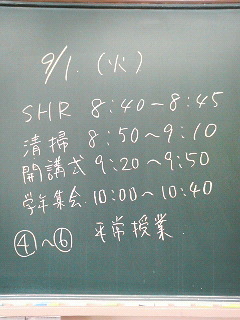 9/1.(火)
SHR 8:40~8:45
清掃 8:50~9:10
開講式 9:20~9:50
学年集会 10:00~10:40
④~⑥ 平常授業.